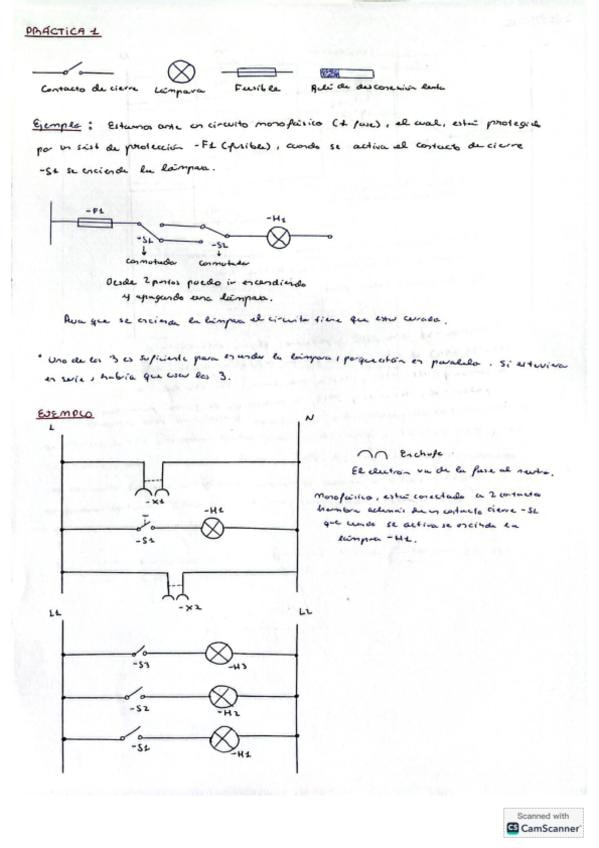 PRÁCTICA 1
Contacto de cierre Lámpara Fusible Relé de desconexión lenta
Ejemplo: Estamos ante un circuito monofásico (1 fase), el cual, está protegido
por un sist de protección -F1 (fusible), cuando se activa el contacto de cierre
-S1 se enciende la lámpara.
-F1 -H1
-S1 -S2
conmutador conmutador
Desde 2 puntos puedo ir encendiendo
y apagando una lámpara.
Para que se encienda la lámpara el circuito tiene que estar cerrado.
* Uno de los 3 es suficiente para encender la lámpara, porque están en paralelo. Si estuviera
en serie, habría que usar los 3.
EJEMPLO
L N
Enchufe.
El electrón va de la fase al neutro.
-X1
Monofásico, está conectado a 2 contactos
hembra además de un contacto cierre -S1
que cuando se activa se enciende la
lámpara -H1.
-H1
-S1
-X2
L1 L2
-S3 -H3
-S2 -H2
-S1 -H1
Scanned with
CS CamScanner